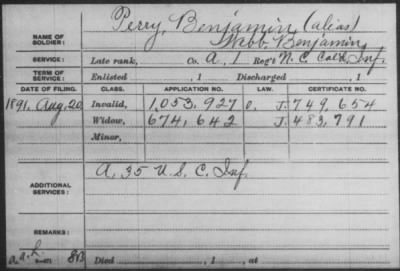 Perry, Benjamin, (alias)
NAME OF SOLDIER: Webb, Benjamin
SERVICE: Late rank, Co. A, 1 Reg't N.C. Col'd Inf.
TERM OF SERVICE: Enlisted , 1 Discharged , 1
DATE OF FILING. CLASS. APPLICATION NO. LAW. CERTIFICATE NO.
1891, Aug. 20 Invalid, 1,053,927 J. 749,654
Widow, 674,642 J. 483,791
Minor,
ADDITIONAL SERVICES: A, 35 U.S.C. Inf.
REMARKS:
Died , 1 , at